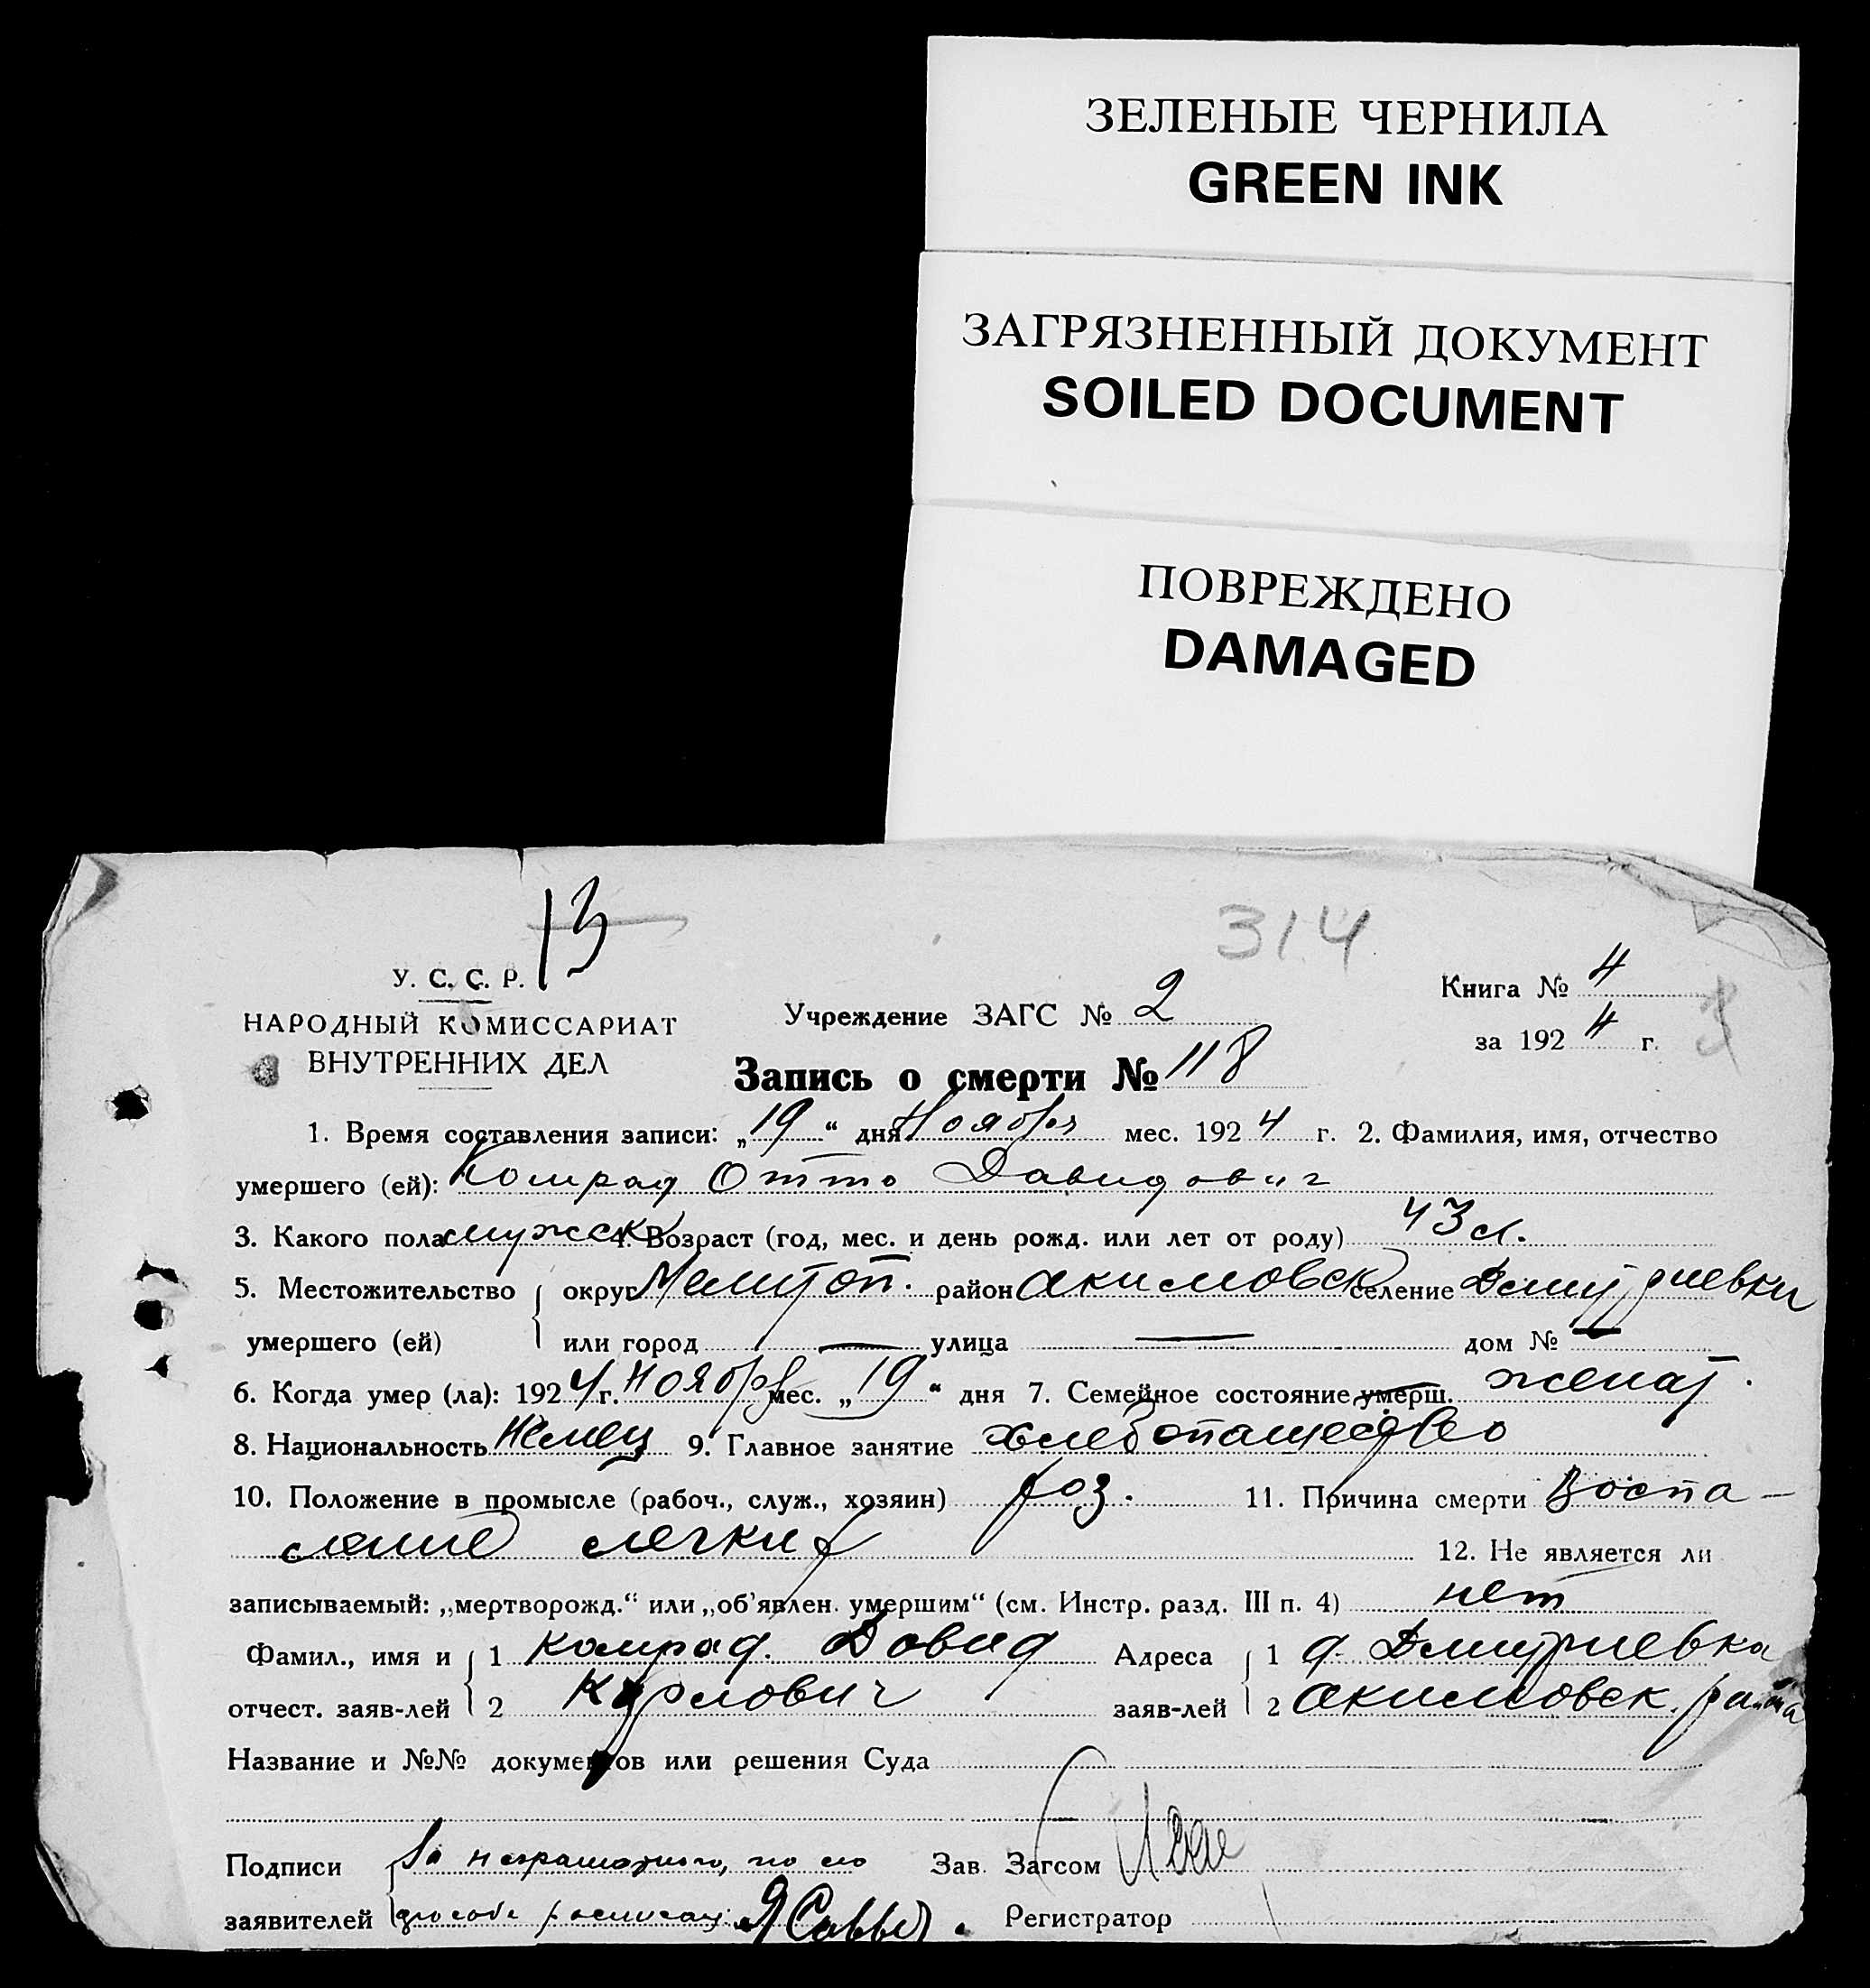 ЗЕЛЕНЫЕ ЧЕРНИЛА
GREEN INK
ЗАГРЯЗНЕННЫЙ ДОКУМЕНТ
SOILED DOCUMENT
ПОВРЕЖДЕНО
DAMAGED
13
314
У. С. С. Р.
НАРОДНЫЙ КОМИССАРИАТ
ВНУТРЕННИХ ДЕЛ
Учреждение ЗАГС № 2
Книга № 4
за 1924 г.
Запись о смерти № 118
1. Время составления записи: „19“ дня Ноября мес. 1924 г. 2. Фамилия, имя, отчество
умершего (ей): Конрад Отто Давидович
3. Какого пола мужск 4. Возраст (год, мес. и день рожд. или лет от роду) 43 л.
5. Местожительство округ Мелитоп. район Акимовск селение Дмитриевки
умершего (ей) или город — улица — дом № —
6. Когда умер (ла): 1924 г. Ноября мес. „19“ дня 7. Семейное состояние умерш. женат.
8. Национальность Немец 9. Главное занятие хлебопашество
10. Положение в промысле (рабоч., служ., хозяин) хоз. 11. Причина смерти Воспа-
ление легких
12. Не является ли
записываемый: „мертворожд.“ или „об'явлен. умершим“ (см. Инстр. разд. III п. 4) нет
Фамил., имя и 1 Конрад. Давид Адреса 1 д. Дмитриевка
отчест. заяв-лей 2 Карлович заяв-лей 2 Акимовск. района
Название и №№ документов или решения Суда
Подписи За неграмотного, по его Зав. Загсом
заявителей просьбе расписал Регистратор